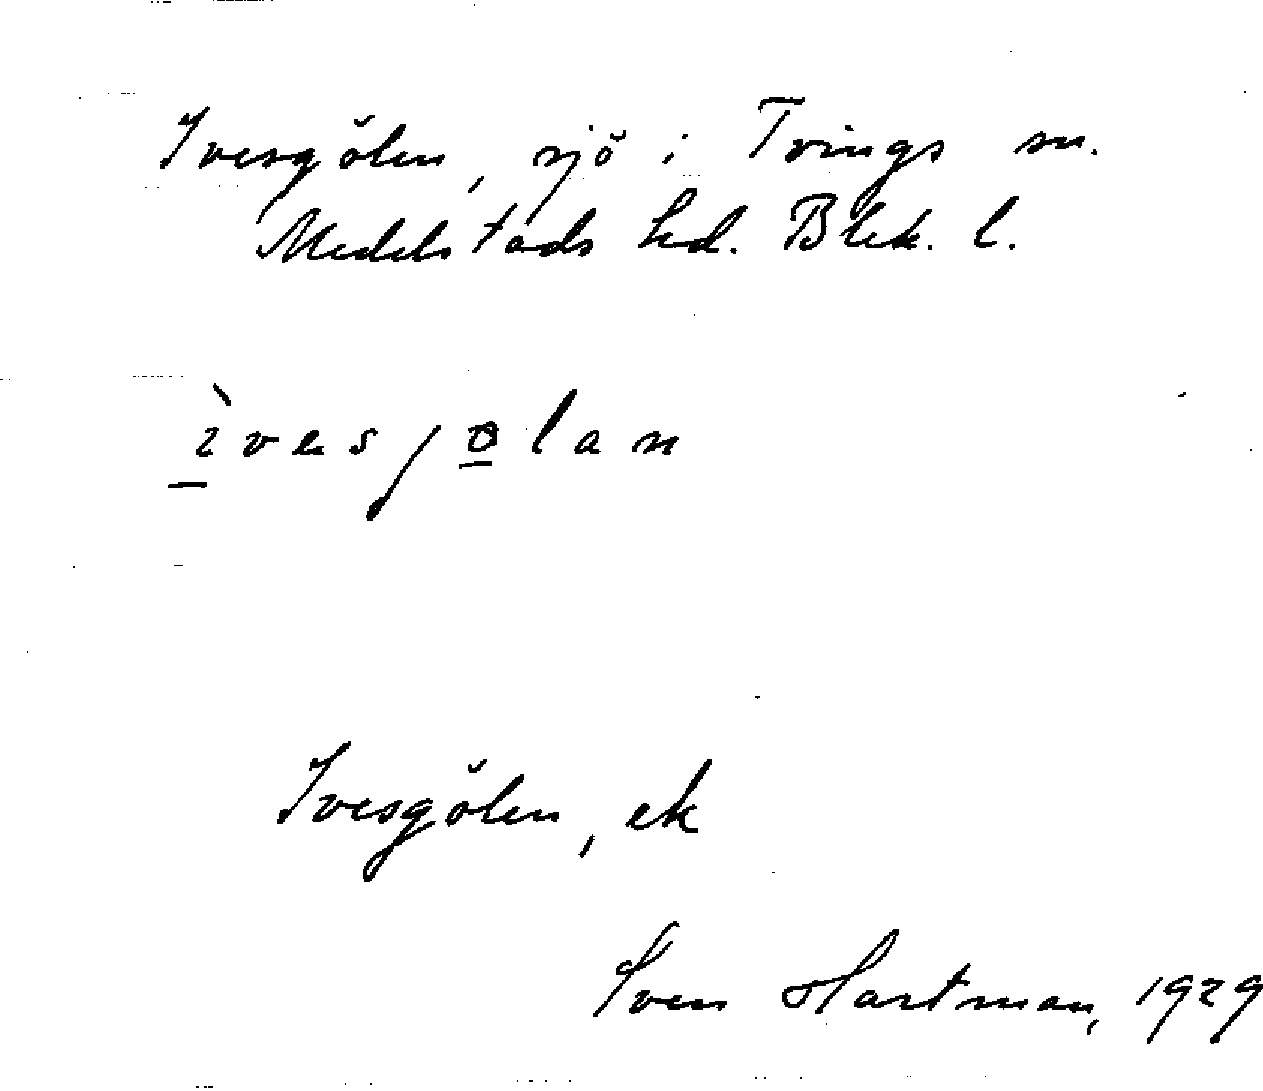 Ivesgölen, sjö i Tvings sn.
Medelstads hd. Blek. l.
ìvesjølan
Ivesgölen, ek
Sven Hartman, 1929